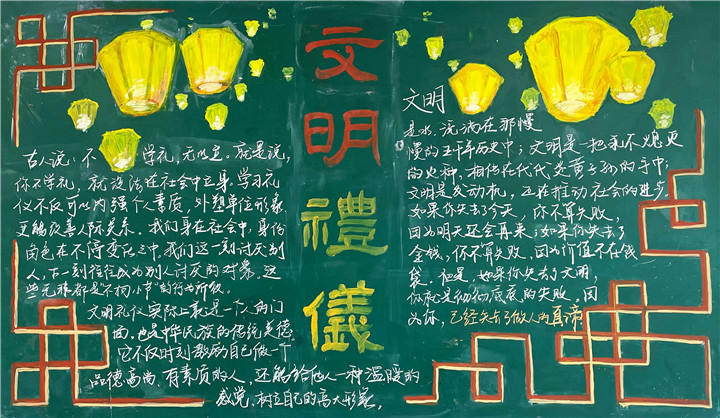 文明禮儀
古人说：不学礼，无以立。就是说，
你不学礼，就没法在社会中立身。学习礼
仪不仅可以内强个人素质，外塑单位形象
更能改善人际关系。我们身在社会中，身份
角色在不停变化之中，我们这一刻讨厌别
人，下一刻往往成为别人讨厌的对象，这
些无疑都是不拘小节的行为所致
文明礼仪实际上就是一个人的门
面，也是中华民族的传统美德
它不仅时刻激励自己做一个
品德高尚、有素质的人，还能给他人一种温暖的
感觉，树立自己的高大形象。
文明
是水，流淌在那慢
慢的五千年历史中；文明是一把永不熄灭
的火种，相传在代代炎黄子孙的手中；
文明是发动机，正在推动社会的进步。
如果你失去了今天，你不算失败，
因为明天还会再来；如果你失去了
金钱，你不算失败，因为价值不在钱
袋。但是，如果你失去了文明，
你就是彻彻底底的失败，因
为你，已经失去了做人的真谛